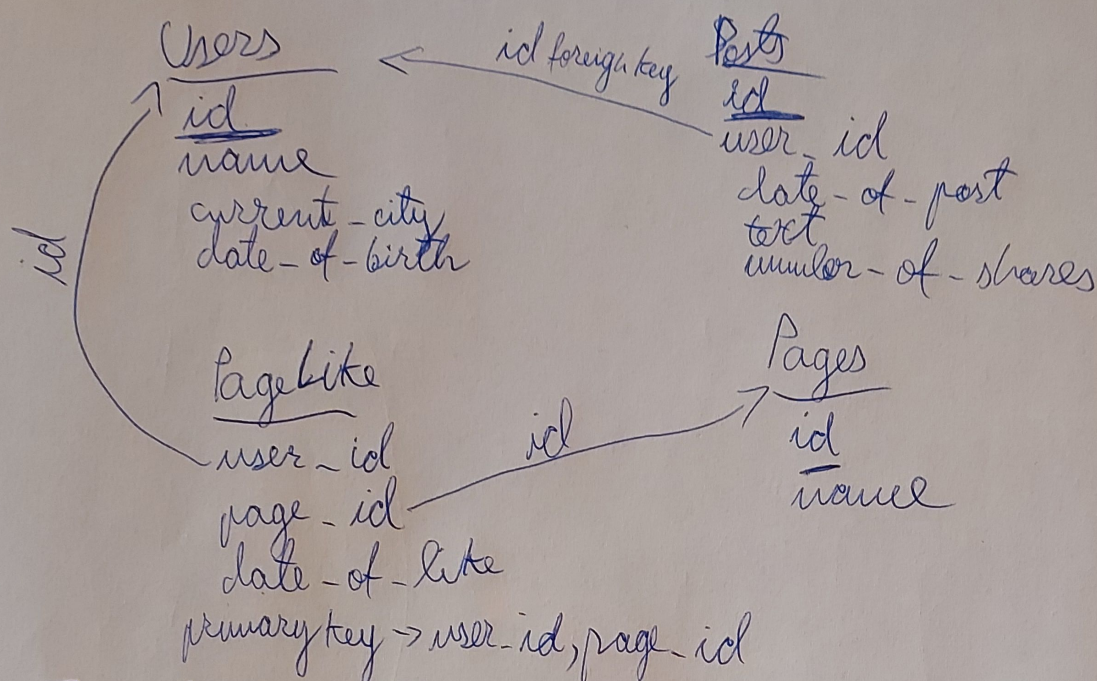 Users
id
name
current_city
date_of_birth
id foreign key
Posts
id
user_id
date_of_post
text
number_of_shares
id
PageLike
user_id
page_id
date_of_like
primary key → user_id, page_id
id
Pages
id
name